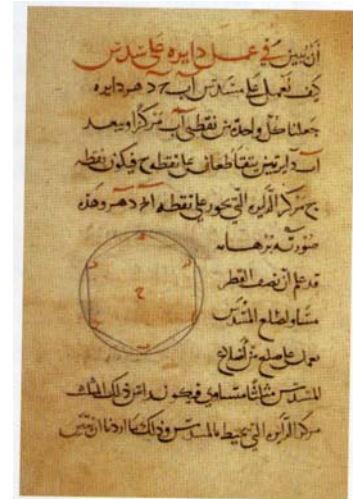 أن نبين في عمل دايره على مسدس
كيف نعمل على مسدس آب ج د هر دايره
جعلنا كل واحدة من نقطتي آب مركزا وببعد
آب دايرتين يتقاطعان على نقطه ح فيكون نقطه
ح مركز الدايره التي تجوز على نقطه اب ج د هر وهذه
صورته برهانه
قد علم ان نصف القطر
مساو لضلع المسدس
نعمل على ضلع من أضلاع
المسدس مثلثا متساوي فيكون راس ذلك المثلث
مركز الدايره التي تحيط بالمسدس وذلك ما اردنا ان نبين
ح